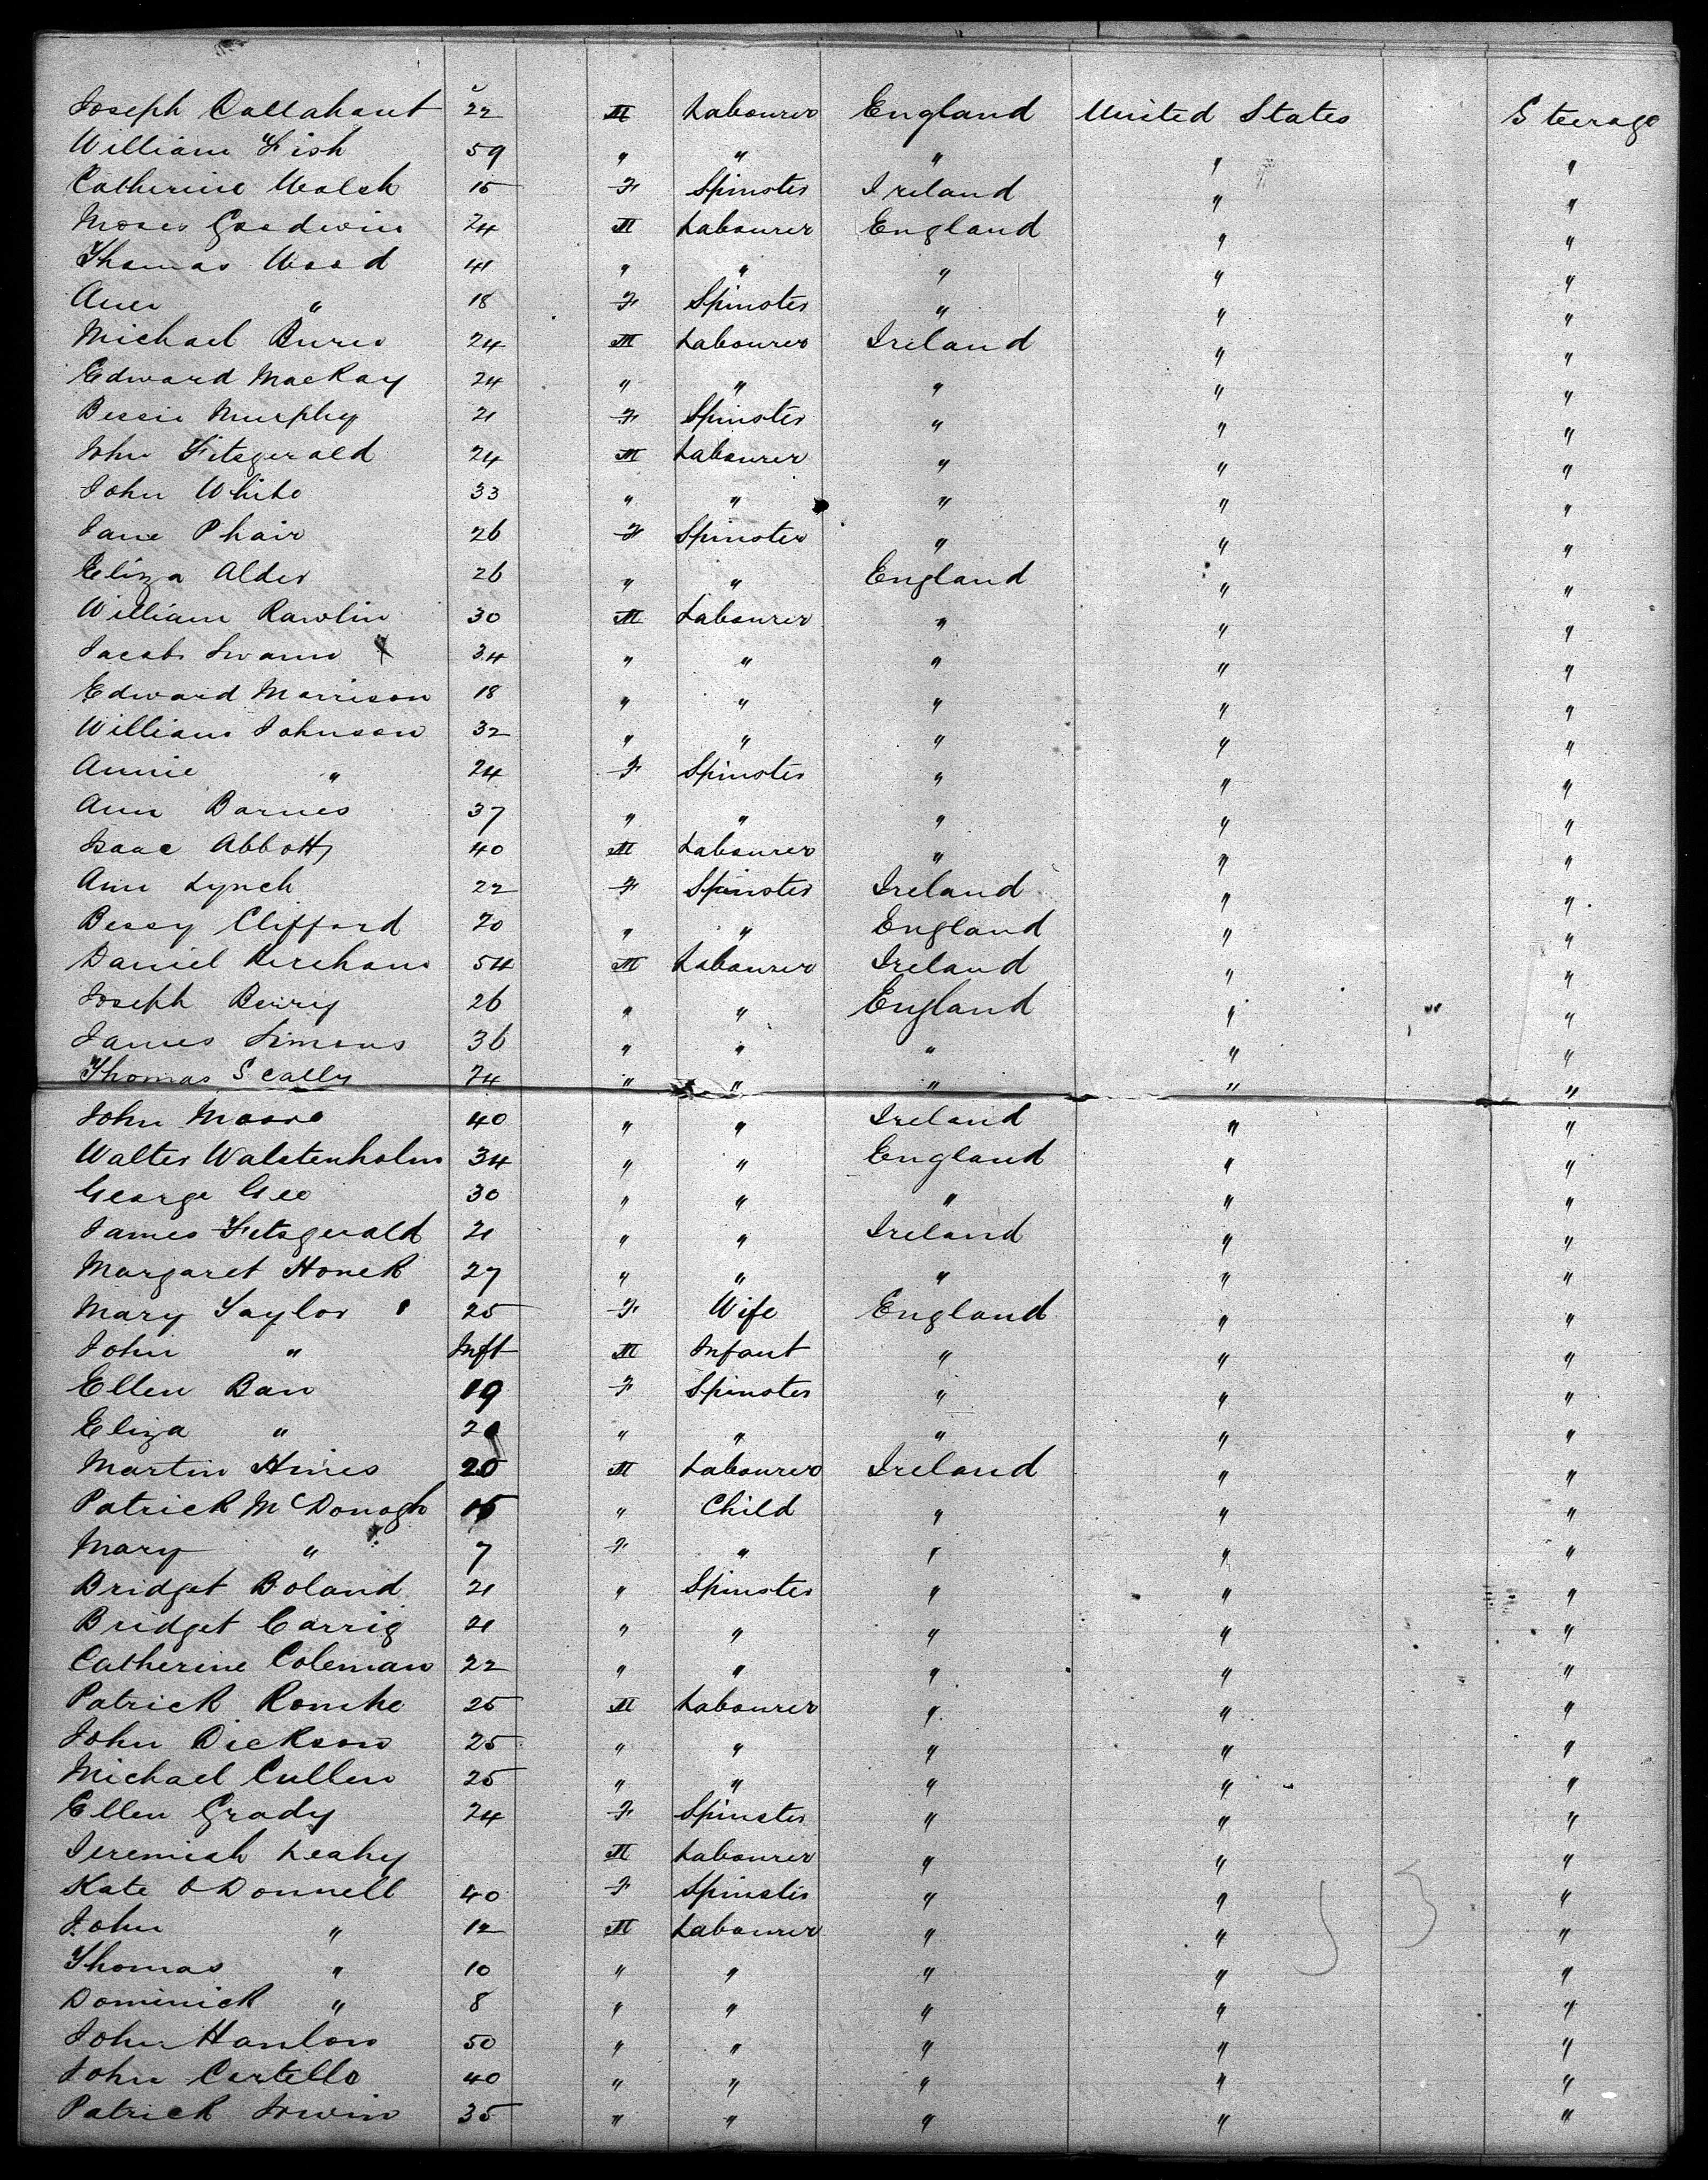 Joseph Callahant 22 M Labourer England United States Steerage
William Fish 59 " " " " "
Catherine Walsh 15 F Spinster Ireland " "
Moses Goodwin 24 M Labourer England " "
Thomas Wood 41 " " " " "
Ann " 18 F Spinster " " "
Michael Burns 24 M Labourer Ireland " "
Edward MacKay 24 " " " " "
Bessie Murphy 21 F Spinster " " "
John Fitzgerald 24 M Labourer " " "
John White 33 " " " " "
Jane Phair 26 F Spinster " " "
Eliza Alder 26 " " England " "
William Rawlin 30 M Labourer " " "
Jacob Swann 34 " " " " "
Edward Morrison 18 " " " " "
William Johnson 32 " " " " "
Annie " 24 F Spinster " " "
Ann Barnes 37 " " " " "
Isaac Abbott 40 M Labourer " " "
Ann Lynch 22 F Spinster Ireland " "
Bessy Clifford 20 " " England " "
Daniel 54 M Labourer Ireland " "
Joseph Berry 26 " " England " "
James Simons 36 " " " " "
Thomas Scally 24 " " " " "
John Moore 40 " " Ireland " "
Walter Walstenholm 34 " " England " "
George Gee 30 " " " " "
James Fitzgerald 21 " " Ireland " "
Margaret 27 " " " " "
Mary Taylor 25 F Wife England " "
John " Inft M Infant " " "
Ellen Barr 19 F Spinster " " "
Eliza " " " " " "
Martin Hines 20 M Labourer Ireland " "
Patrick McDonogh 15 " Child " " "
Mary " 7 F " " " "
Bridget Boland 21 " Spinster " " "
Bridget Carrig 21 " " " " "
Catherine Coleman 22 " " " " "
Patrick 25 M Labourer " " "
John Dickson 25 " " " " "
Michael Cullen 25 " " " " "
Ellen Grady 24 F Spinster " " "
Jeremiah Leahy M Labourer " " "
Kate O Donnell 40 F Spinster " " "
John " 12 M Labourer " " "
Thomas " 10 " " " " "
Dominick " 8 " " " " "
John Hanlon 50 " " " " "
John Costello 40 " " " " "
Patrick Irwin 35 " " " " "